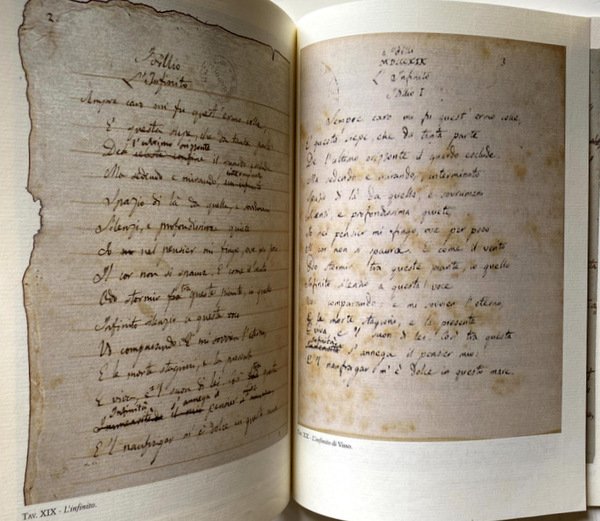 2.
Idillio
L'Infinito
Sempre caro mi fu quest'ermo colle,
E questa siepe, che da tanta parte
l'ultimo orizzonte
Del celeste confine il guardo esclude.
interminato
Ma sedendo e mirando,
Spazio di là da quella, e sovrumani
Silenzi, e profondissima quiete
Io nel pensier mi fingo, ove per poco
Il cor non si spaura. E come il vento
Odo stormir tra queste piante, io quello
Infinito silenzio a questa voce
Vo comparando: E mi sovvien l'eterno,
E le morte stagioni, e la presente
E viva, e 'l suon di lei. Così tra questa
Infinità s'annega il
Immensità il mio pensier
E 'l naufragar m'è dolce in questo mare.
TAV. XIX - L'infinito.
3
MDCCCXIX
L'Infinito
Idillio I
Sempre caro mi fu quest'ermo colle,
E questa siepe che da tanta parte
De l'ultimo orizzonte il guardo esclude.
Ma sedendo e mirando, interminato
Spazio di là da quella, e sovrumani
Silenzi, e profondissima quiete
Io nel pensier mi fingo, ove per poco
Il cor non si spaura. E come il vento
Odo stormir tra queste piante, io quello
Infinito silenzio a questa voce
Vo comparando: e mi sovvien l'eterno,
E le morte stagioni, e la presente
E viva e 'l suon di lei. Così tra questa
Infinità
Immensità s'annega il pensier mio:
E 'l naufragar m'è dolce in questo mare.
TAV. XX - L'infinito di Visso.